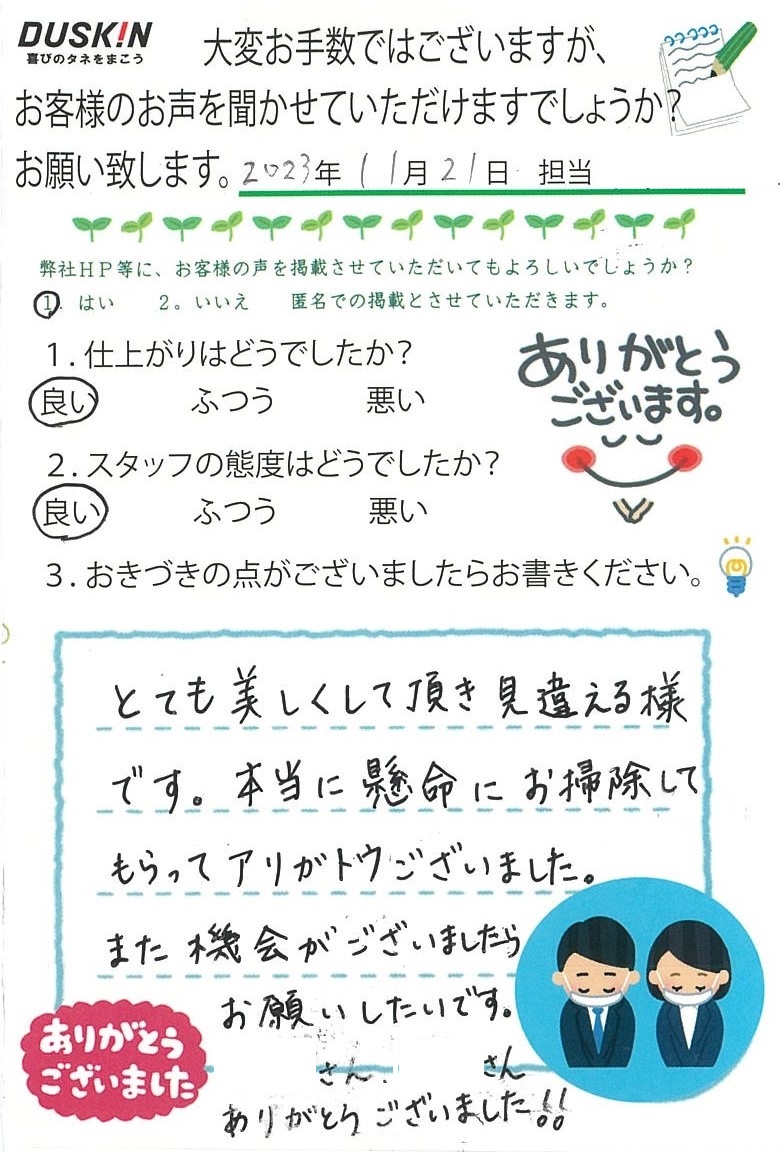 DUSKIN
喜びのタネをまこう
大変お手数ではございますが、
お客様のお声を聞かせていただけますでしょうか?
お願い致します。2023年 11月21日 担当
弊社HP等に、お客様の声を掲載させていただいてもよろしいでしょうか?
1. はい 2。いいえ 匿名での掲載とさせていただきます。
1.仕上がりはどうでしたか?
良い ふつう 悪い
ありがとう
ございます。
2.スタッフの態度はどうでしたか?
良い ふつう 悪い
3.おきづきの点がございましたらお書きください。
とても美しくして頂き見違える様
です。本当に懸命にお掃除して
もらってアリがトウございました。
また機会がございましたら
お願いしたいです。
さん. さん
ありがとうございました!!
ありがとう
ございました